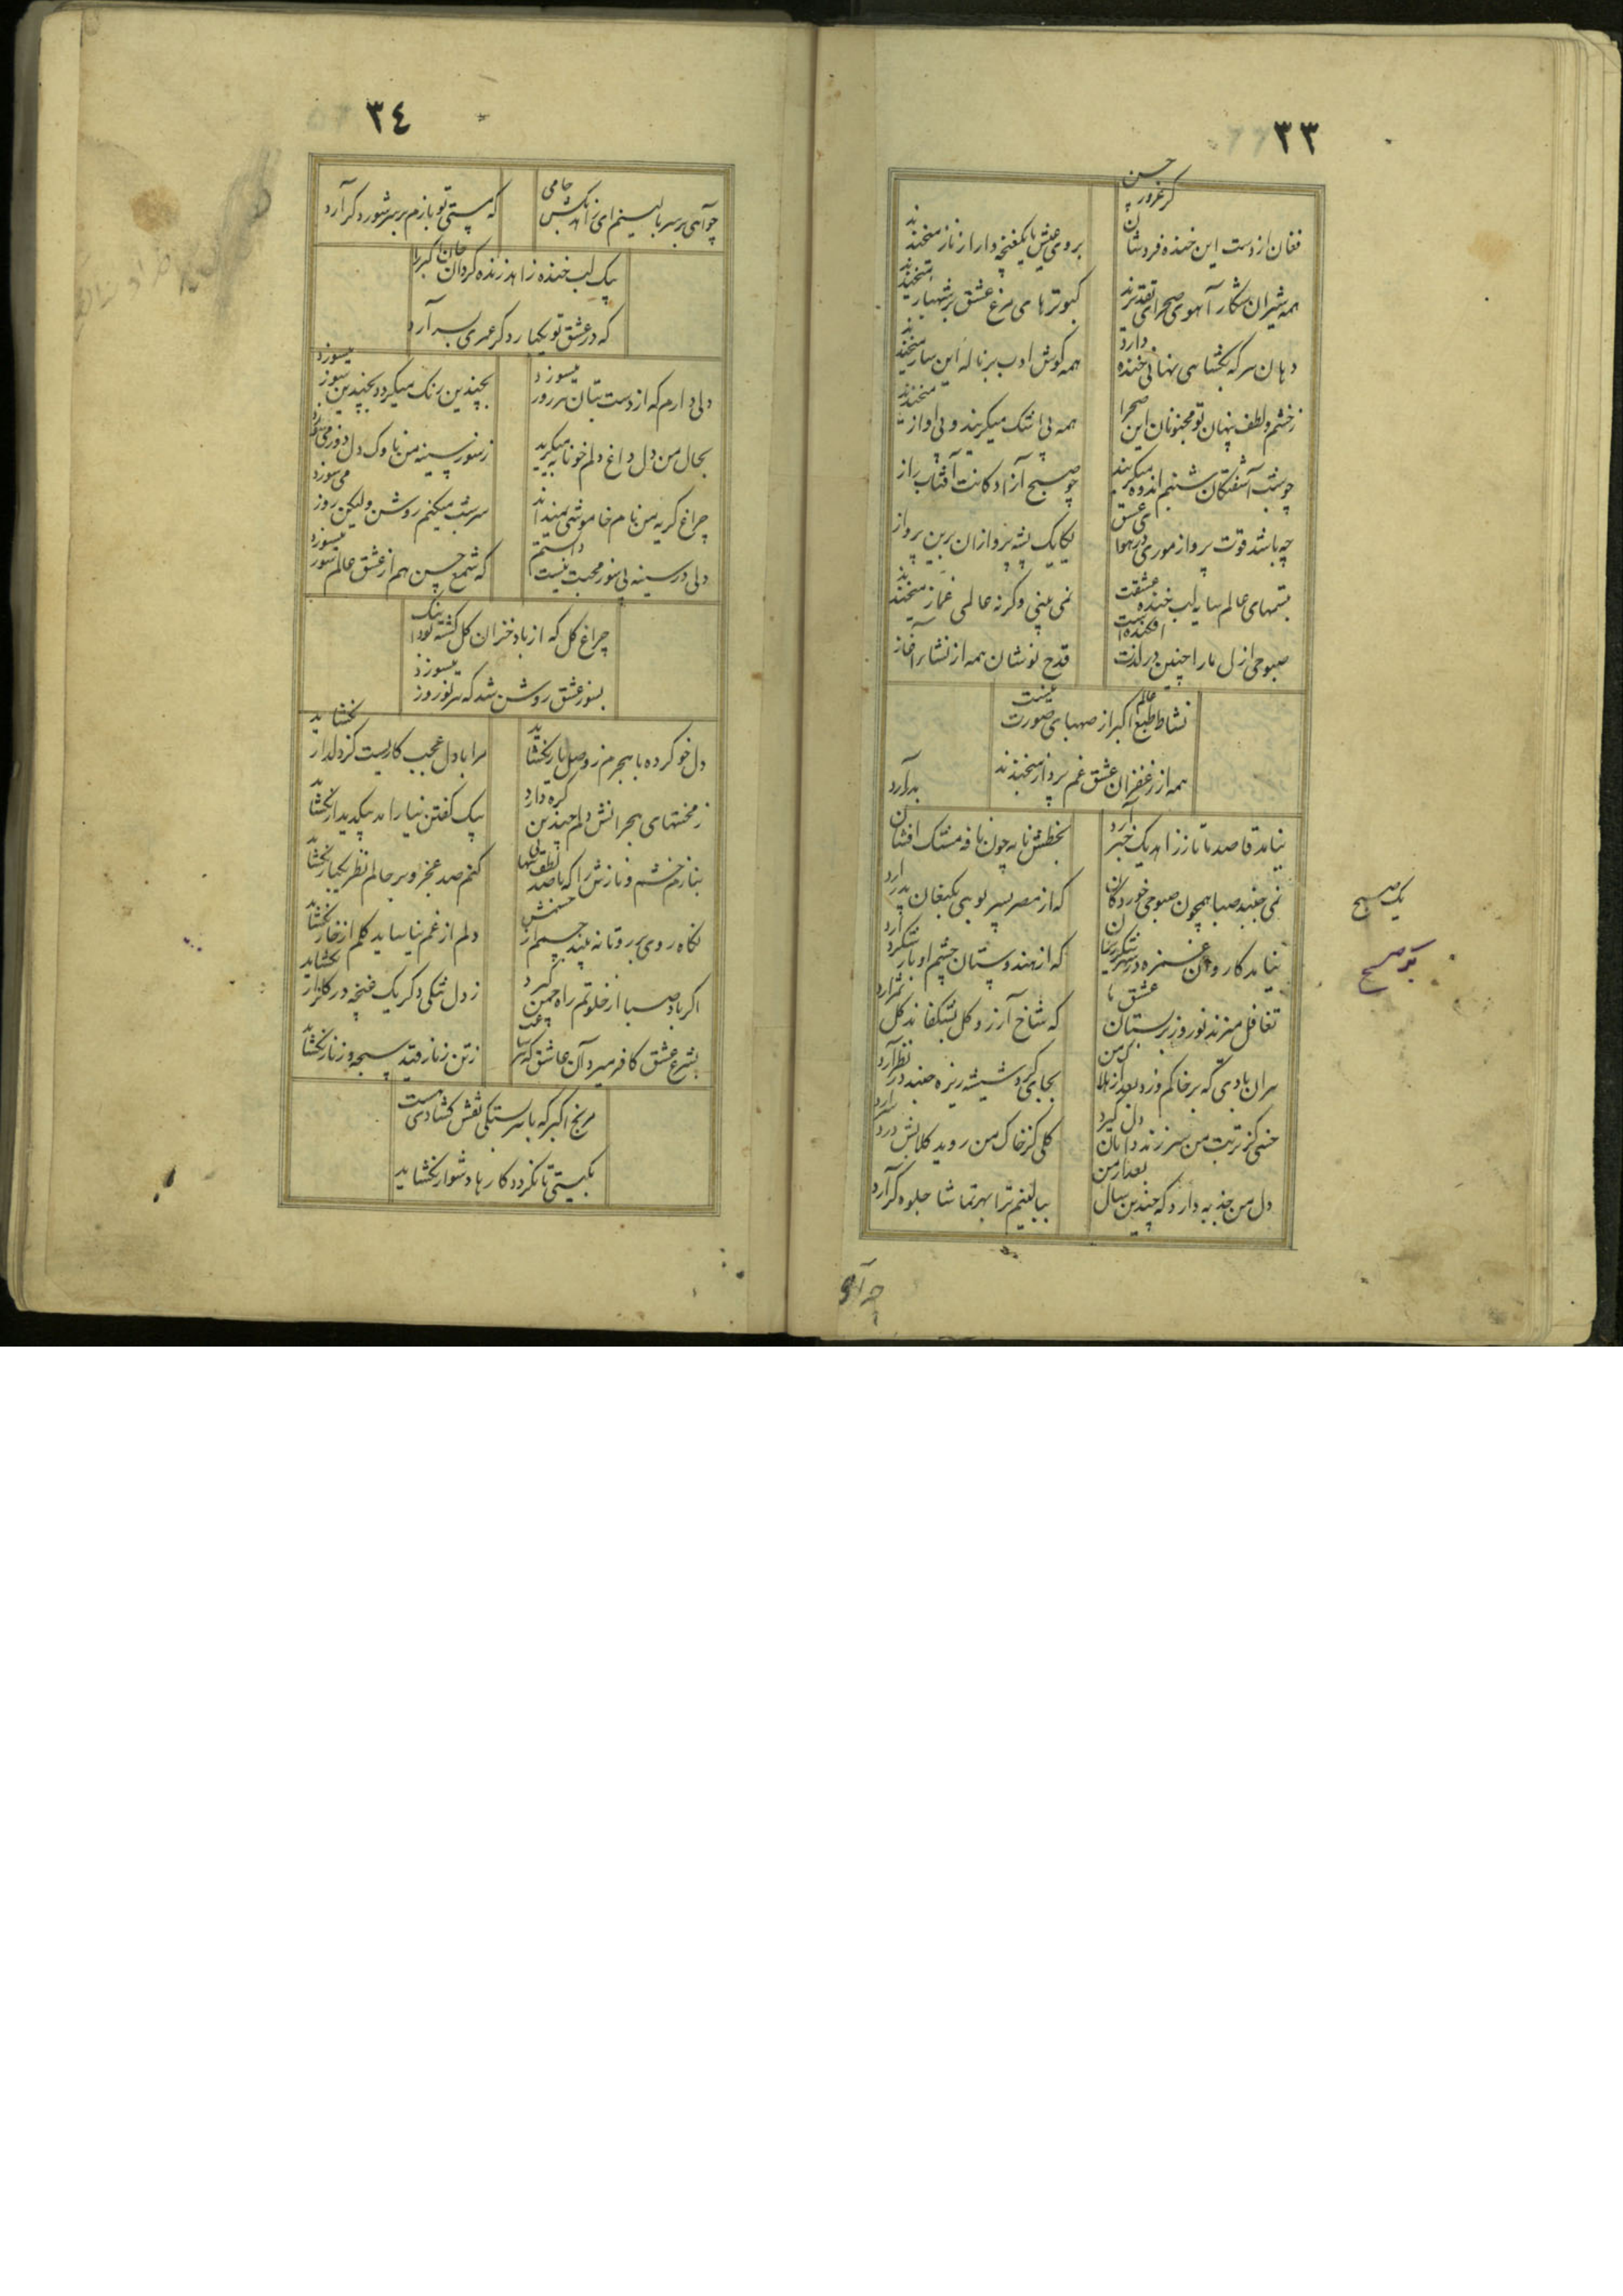 ٣٣
فغان از دست این خنده فروشان کز غرور حسن
بروی عیش ما یکغنچه وار از ناز میخندند
همه شیران شکار آهوی صحرای تقدیرند
کبوترهای مرغ عشق بر شهباز میخندند
دهان هر که بگشاهی نهانی خنده دارد
همه گوش ادب بر ناله این ساز میخندند
ز خشم و لطف پنهان تو مجنونان این صحرا
همه بی اشک میگریند و بی اواز میخندند
چو شب آشفتگان شبنم اندوه میگریند
چو صبح آزادگانت آفتاب راز
چه باشد قوت پرواز موری در هوای عشق
یکایک پشه پروازان برین پرواز
تبسمهای عالم سایه لب خنده عشقت
نمی بینی وگرنه عالمی غماز میخندند
صبوحی ازل ما را چنین در لذت افکنده است
قدح نوشان همه از نشاء آغاز
نشاط طبع اکبر از صهبای صورت نیست
همه از زعفران عشق غم پرداز میخندند
نیامد قاصدی تا زان زاهد یک خبر آرد
بخطش نامه چون نافه مشک افشان بدر آرد
نمی جنبد صبا همچون صبوحی خوردگان
که از مصر پسر بویی بکنعان پدر آرد
نیامد کاروان غمزه در شهر شکرریزان
که از هندوستان چشم او بار شکر آرد
تغافل میزند نوروز بر بستان عشق ما
که شاخ آرزو گل بشکفاند گل ثمر آرد
هران بادی که بر خاکم وزد بعد از هلاک من
بجای گرد شیشه ریزه چند در نظر آرد
خسی کز تربت من سر زند دامان دل گیرد
گلی کز خاک من روید گلابش درد سر آرد
دل من جذبه دارد که چندین سال بعد از من
ببالینم ترا بهر تماشا جلوه گر آرد
یک صبح
٣٤
که مستی تو بازم بر سر شور دگر آرد
یک لب خنده زاهد زنده گردان جان اکبر را
که در عشق تو یکبار دگر عمری بسر آرد
دلی دارم که از دست بتان هر روز میسوزد
بچندین رنگ میگردد بچندین سوز میسوزد
بحال من دل داغ دلم خونابه میگرید
ز سوز سینه من ناوک دل دوز می سوزد
چراغ گریه من نام خاموشی نمیداند
سر شب میکنم روشن ولیکن روز می سوزد
دلی در سینه بی سوز محبت نیست دانستم
که شمع حسن هم از عشق عالم سوز میسوزد
چراغ گل که از باد خزان گل گشته بود اینک
بسوز عشق روشن شد که هر نوروز میسوزد
دل خو کرده با هجرم ز وصل یار نگشاید
مرا با دل عجب کاریست کز دلدار نگشاید
ز محنتهای هجرانش دلم چندین گره دارد
بیک گفتن نیاراید بیک دیدار نگشاید
بنازم خشم و نازش را که با صد لطف پنهانی
کنم صد عجز و بر حالم نظر یکبار نگشاید
نگاه روی بر رو تا نه بیند چشم از حسنش
دلم از غم نیاساید گلم از خار نگشاید
اگر باد صبا از خلوتم راه چمن گیرد
ز دل تنگی دگر یک غنچه در گلزار نگشاید
بشرع عشق کافر میرد آن عاشق که
ز تن زنار و قید سبحه و زنار نگشاید
مرنج اکبر که با سربستگی نقش گشادی هست
بگیتی تا نگردد کارها دشوار نگشاید